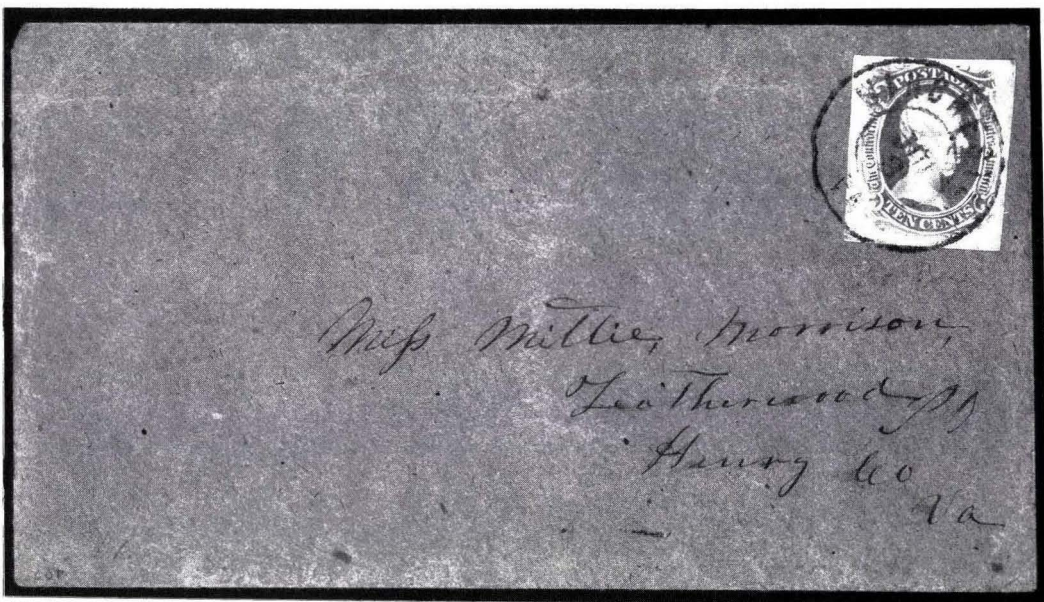 POSTAGE
The Confederate States of America
TEN CENTS
Miss Millie, Morrison,
Leatherwood PO
Henry Co
Va